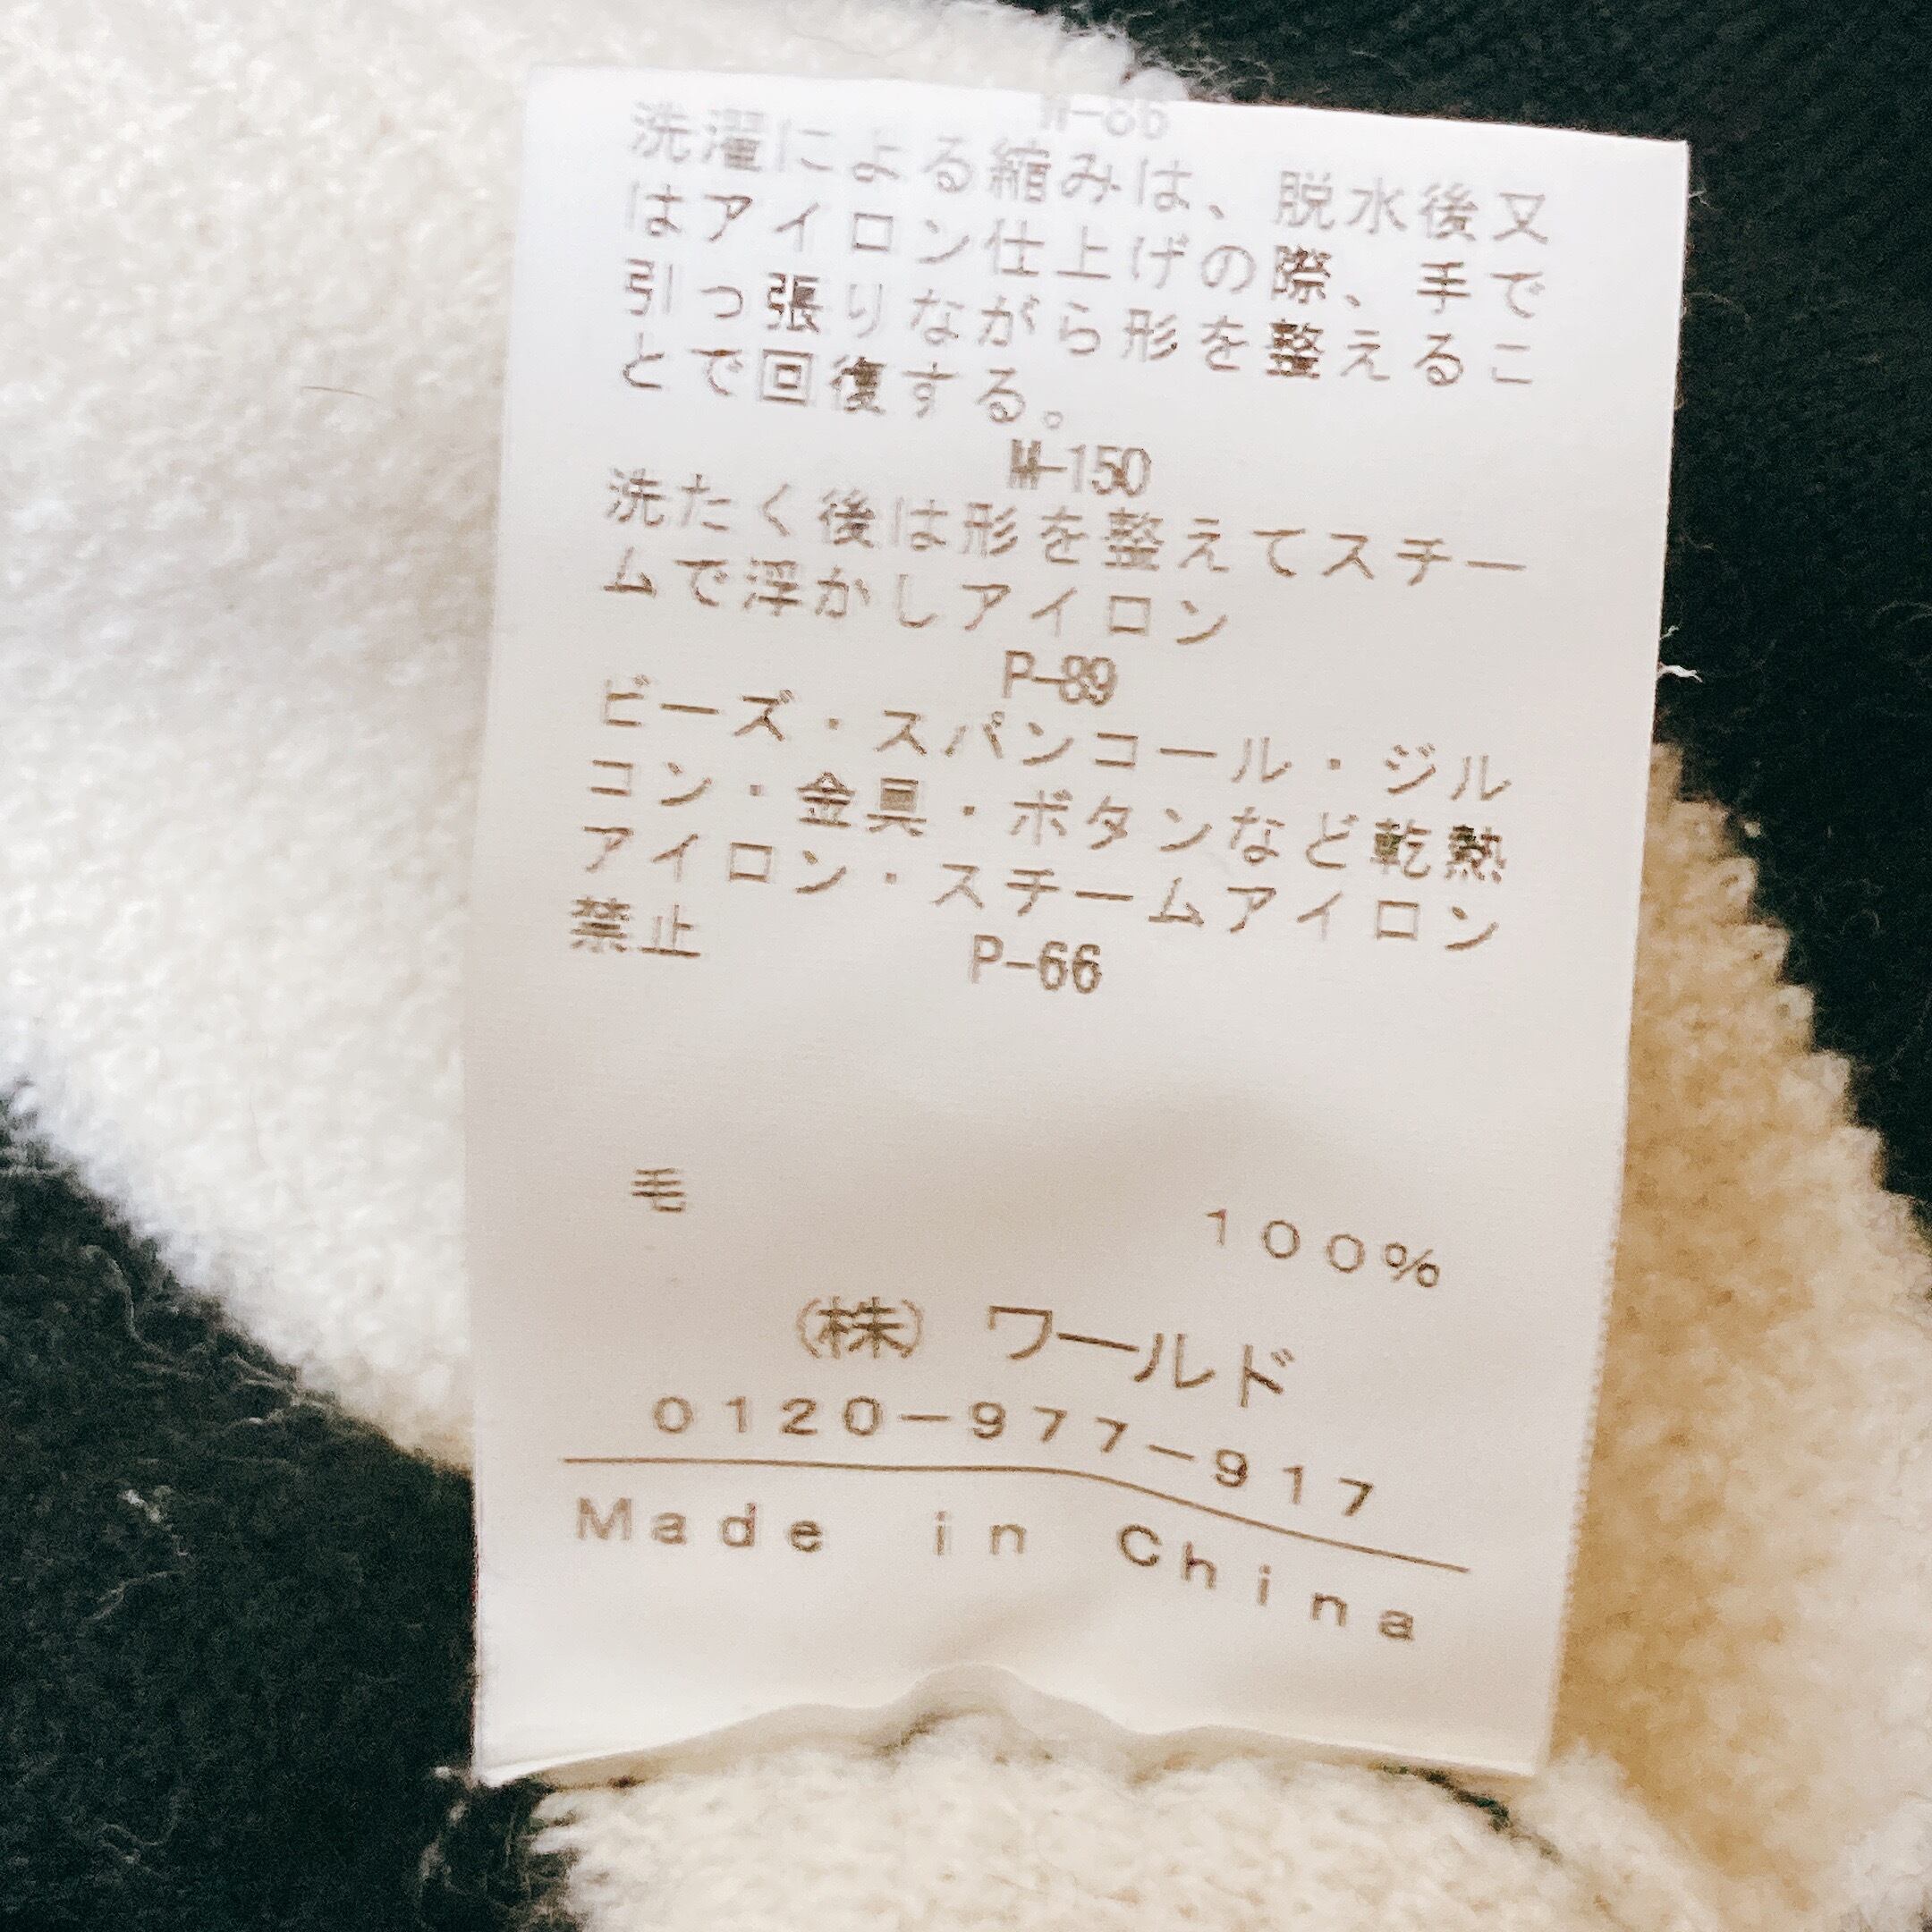 洗濯による縮みは、脱水後又
はアイロン仕上げの際、手で
引っ張りながら形を整えるこ
とで回復する。
M-150
洗たく後は形を整えてスチー
ムで浮かしアイロン
P-89
ビーズ・スパンコール・ジル
コン・金具・ボタンなど乾熱
アイロン・スチームアイロン
禁止 P-66
毛 100%
(株) ワールド
0120-977-917
Made in China